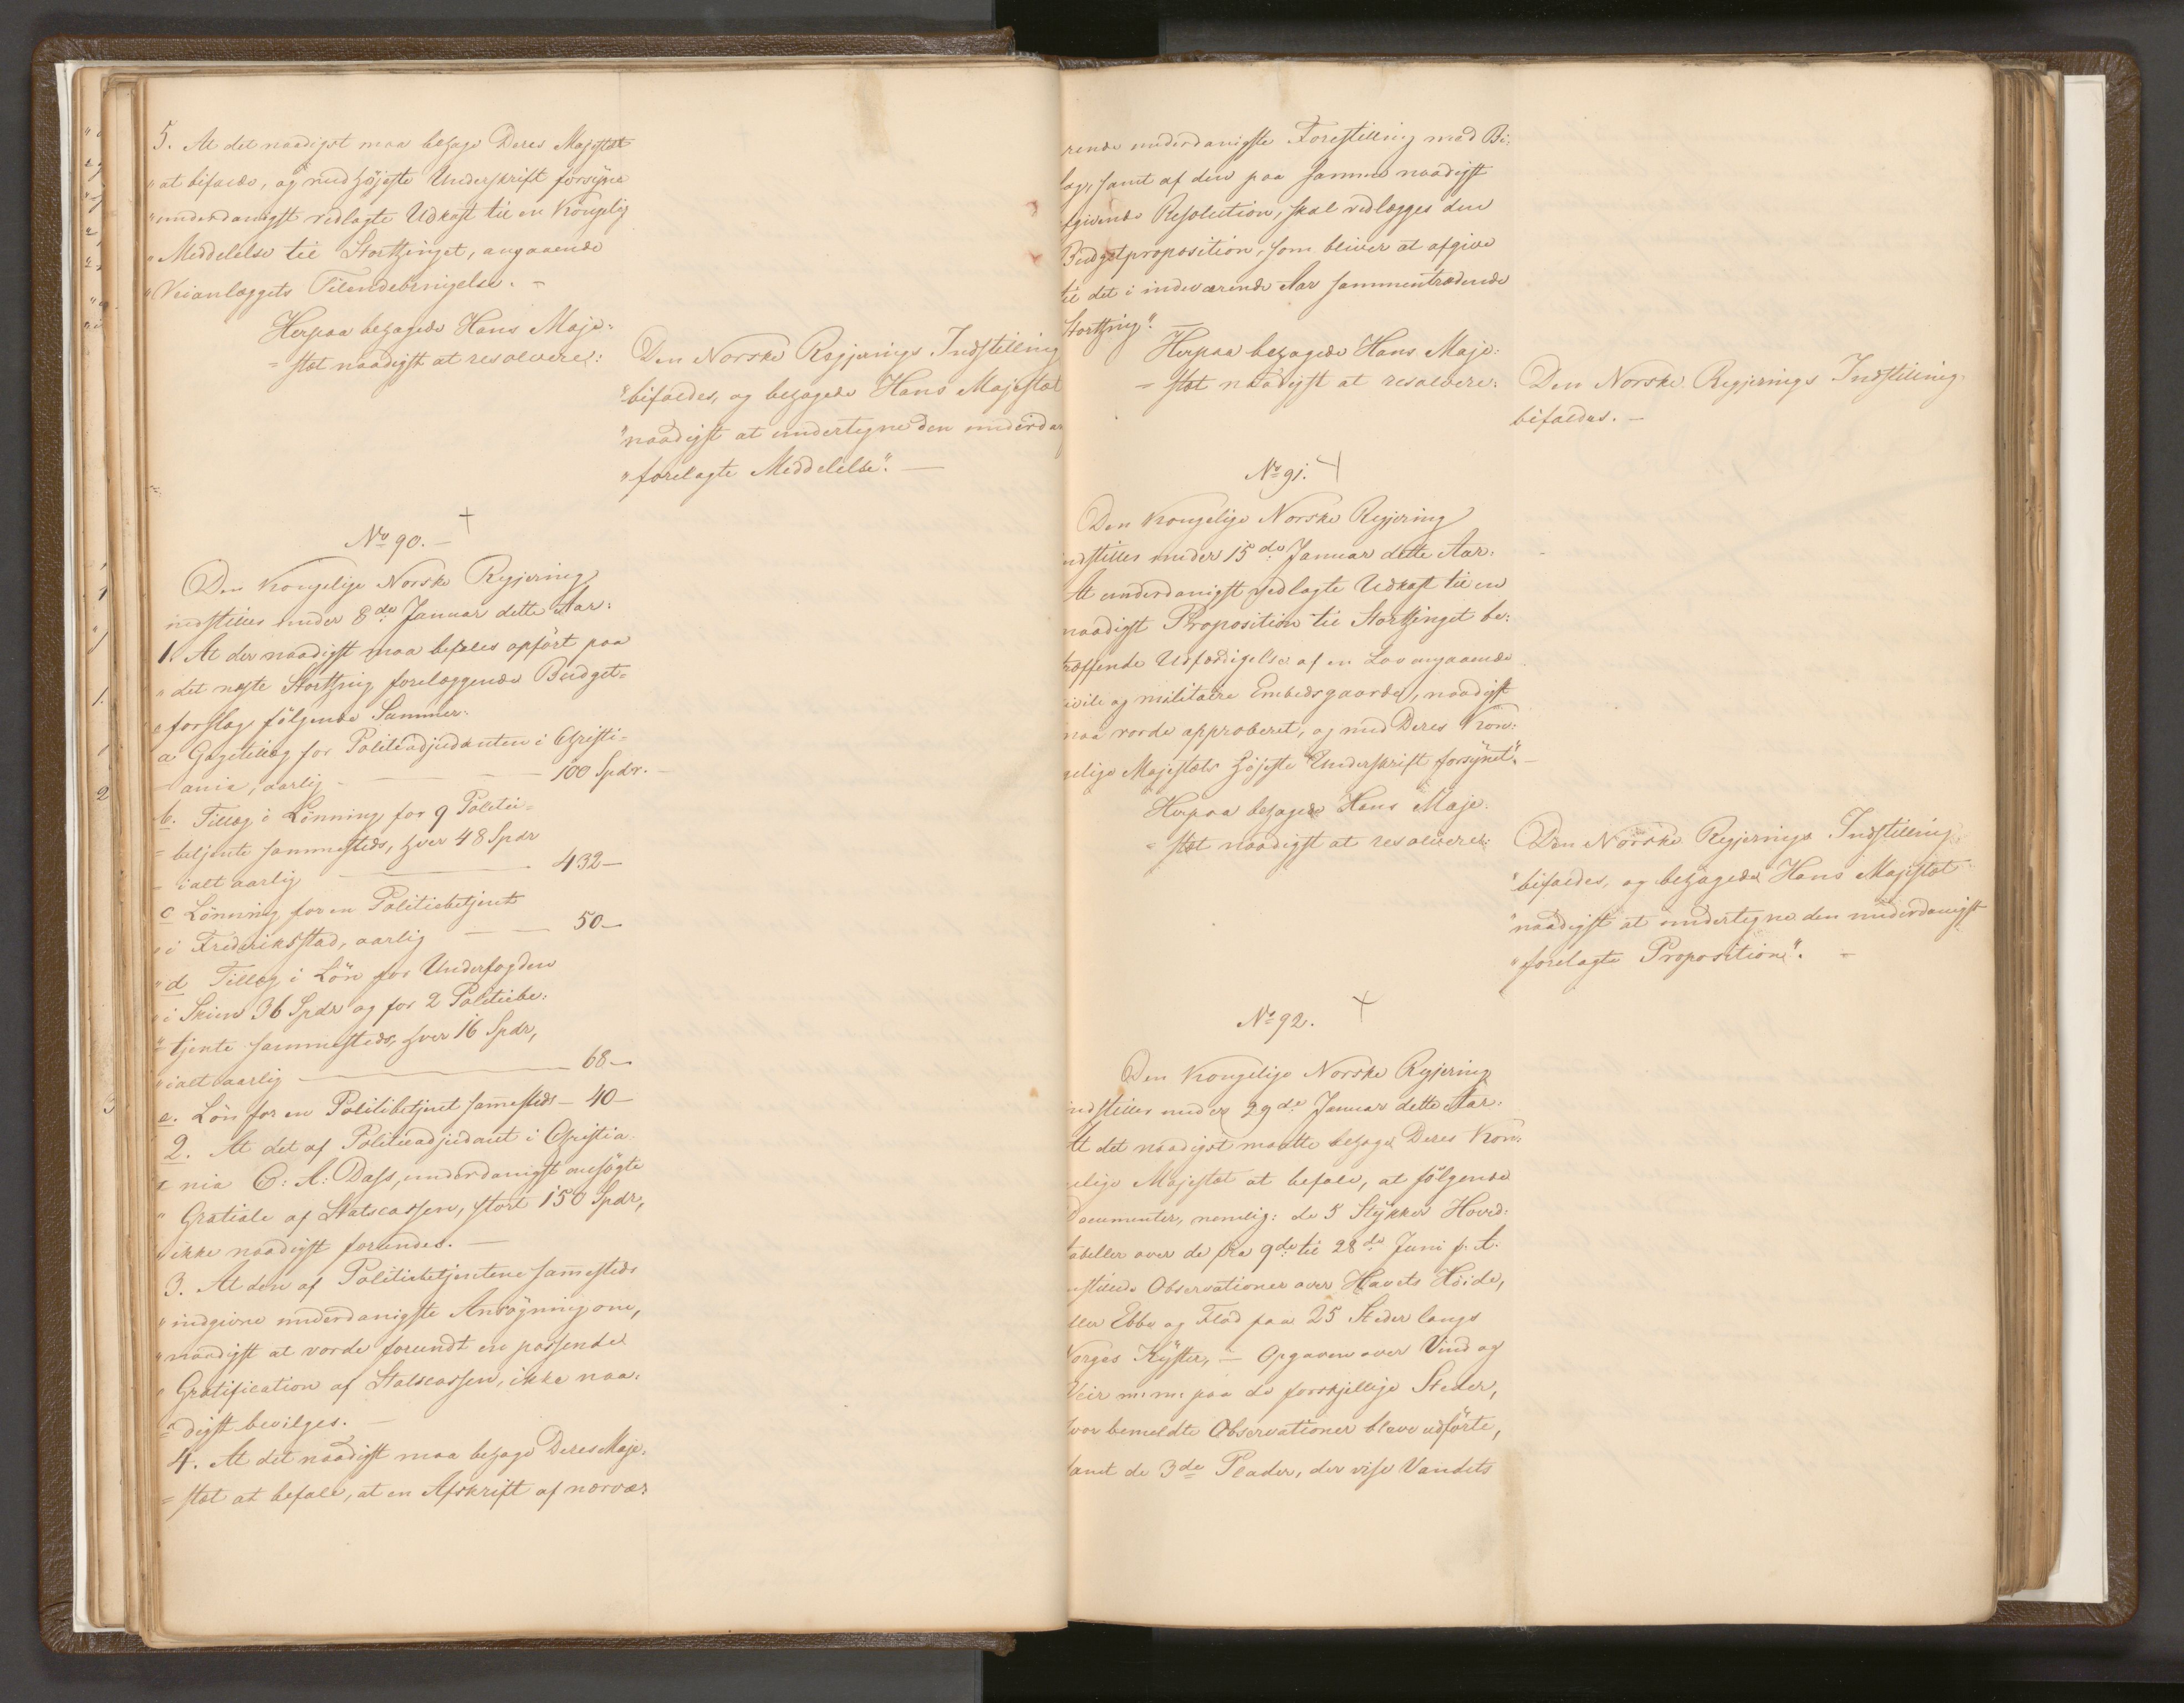 5. At det naadigst maa behage Deres Majestæt
"at bifalde, og med höjeste Underskrift forsyne
"underdanigst vedlagte Udkast til en Kongelig
"Meddelelse til Storthinget, angaaende
"Veianlæggets Tilendebringelse. –
Herpaa behagede Hans Maje-
=stæt naadigst at resolvere:
Den Norske Regjerings Indstilling
"bifaldes, og behagede Hans Majestæt
"naadigst at undertegne den underda
"forelagte Meddelelse". —
No 90. –
Den Kongelige Norske Regjering
indstiller under 8de Januar dette Aar:
1. At der naadigst maa befales opfört paa
"det næste Storthing forelæggende Budget=
"forslag følgende Summer:
a. Gagetillæg for Politiadjudanten i Christi-
=ania, aarlig — — — 100 Spdr. –
b. Tillæg i Lönning for 9 Politie=
=betjente sammesteds, hver 48 Spdr
– ialt aarlig — 432 –
c Lönning for en Politiebetjent
"i Frederiksstad, aarlig — — 50 –
"d Tillæg i Lön for Underfogden
"i Skien 36 Spdr og for 2 Politiebe-
"tjente sammesteds, hver 16 Spdr,
"ialt aarlig — 68 –
e. Lön for en Politibetjent sammesteds – 40 –
2. At det af Politieadjudant i Christia-
nia C: A: Dass, underdanigst ansögte
" Gratiale af Statscassen, stort 150 Spdr,
"ikke naadigst forundes. —
3. At den af Politiebetjentene sammesteds
"indgivne underdanigste Ansøgning om,
"naadigst at vorde forundt en passende
"Gratification af Statscassen, ikke naa-
=digst bevilges. —
4. At det naadigst maa behage Deres Maje-
=stæt at befale, at en Afskrift af nærvæ-
rende underdanigste Forestilling med Bi-
lag, samt af den paa samme naadigst
afgivende Resolution, skal vedlægges den
Budgetproposition, som bliver at afgive
til det i indeværende Aar sammentrædende
Storthing".
Herpaa behagede Hans Maje-
=stæt naadigst at resolvere:
Den Norske Regjerings Indstilling
bifaldes. –
No 91.
Den Kongelige Norske Regjering
indstiller under 15de Januar dette Aar:
At underdanigst vedlagte Udkast til en
naadigst Proposition til Storthinget be-
træffende Udfærdigelse af en Lov angaaende
civile og militaire Embedsgaarde, naadigst
maa vorde approberet, og med Deres Kon-
gelige Majestæts höjeste Underskrift forsynet". –
Herpaa behagede Hans Maje-
=stæt naadigst at resolvere:
Den Norske Regjerings Indstilling
"bifaldes, og behagede Hans Majestæt
"naadigst at undertegne den underdanigst
"forelagte Proposition". –
No 92.
Den Kongelige Norske Regjering
indstiller under 29de Januar dette Aar:
At det naadigst maatte behage Deres Kon-
gelige Majestæt at befale, at følgende
Documenter, nemlig: de 5 Stykker Hoved-
tabeller over de fra 9de til 28de Juni f. A.
anstillede Observationer over Havets Höide,
eller Ebbe og Flod paa 25 Steder langs
Norges Kyster, — Opgaven over Vind og
Veir m: m: paa de forskjellige Steder,
hvor bemeldte Observationer bleve udførte,
samt de 3de Plader, der vise Vandets